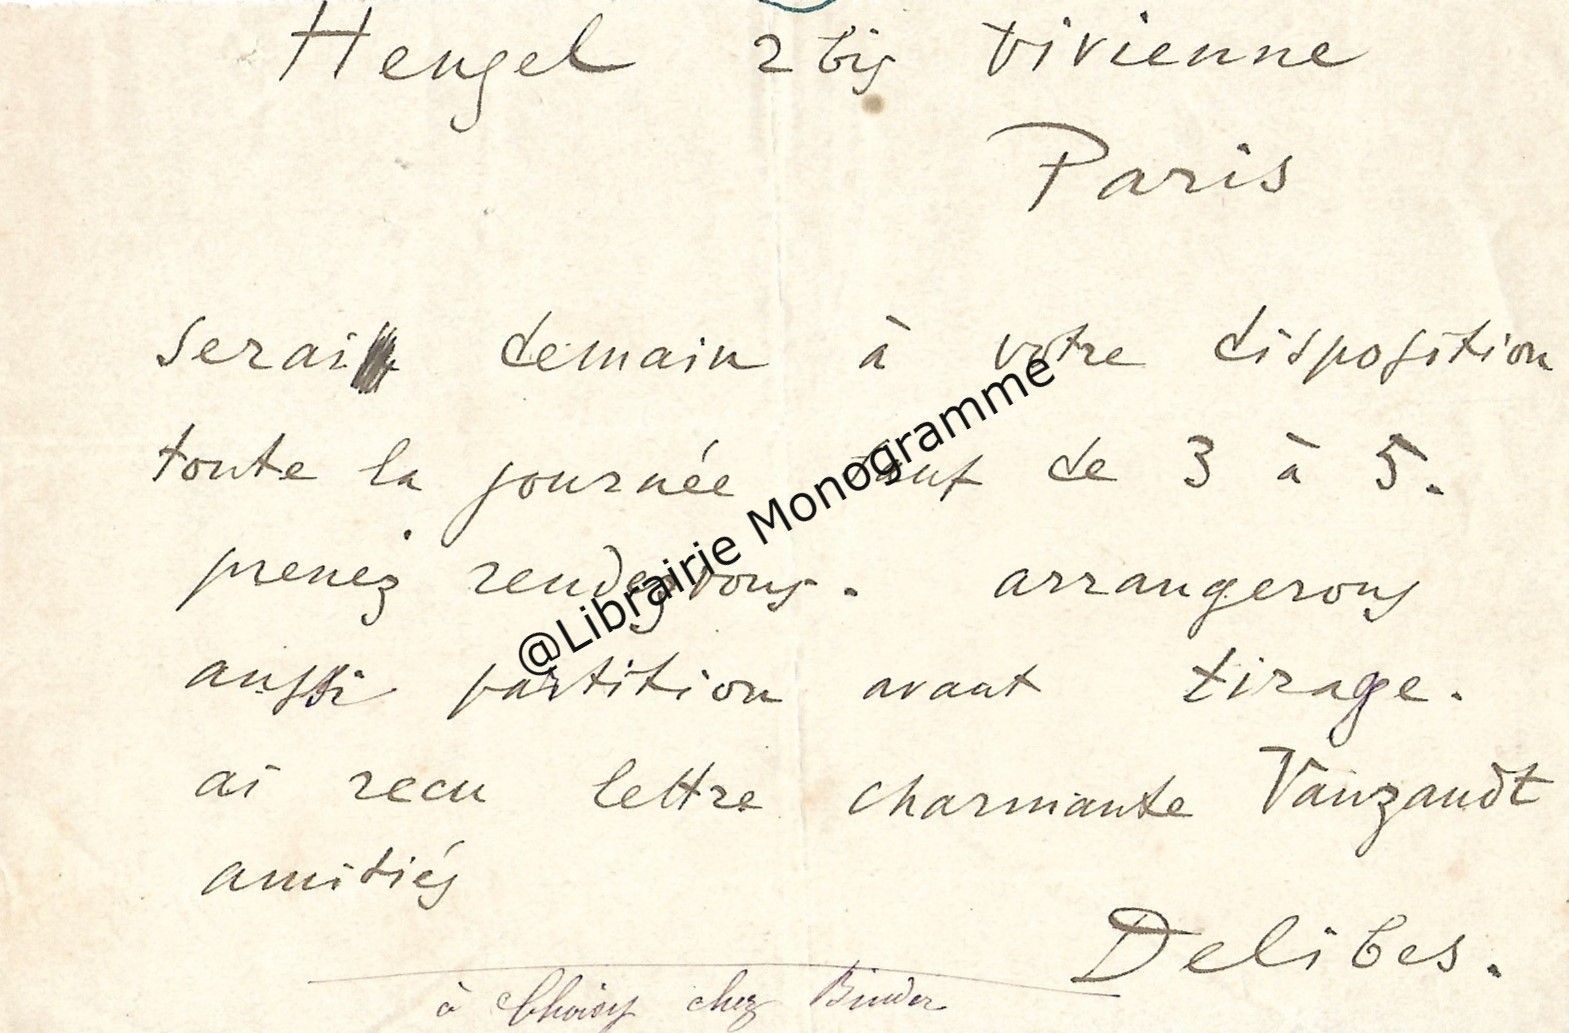 Heugel 2 bis Vivienne
Paris
serai demain à votre disposition
toute la journée sauf de 3 à 5.
prenez rendezvous. arrangerons
aussi partition avant tirage.
ai recu lettre charmante Vanzandt
amitiés
Delibes.
à Choisy chez Binder
@Librairie Monogramme